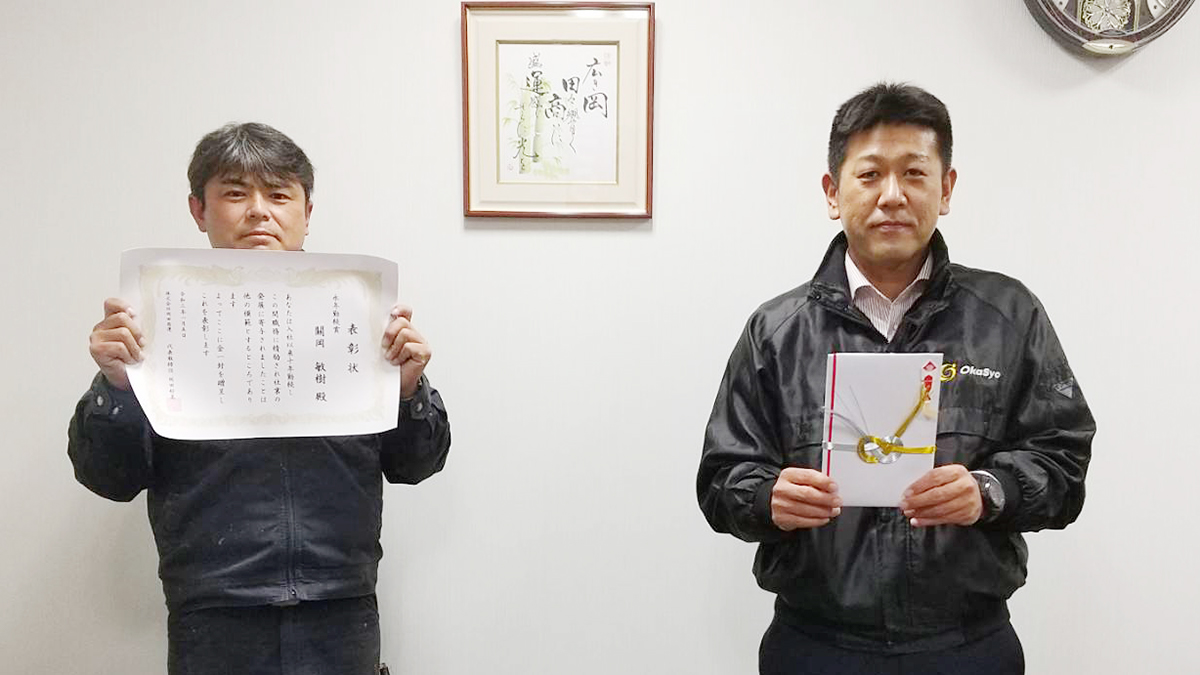 表彰状
永年勤続賞
關岡 敏樹 殿
あなたは入社以来十年勤続し
この間職務に精励され社業の
発展に寄与されましたことは
他の模範とするところであり
ます
よってここに金一封を贈呈し
これを表彰します
令和二年一月五日
代表取締役
広き岡
田々響く
商
運
光
OkaSyo